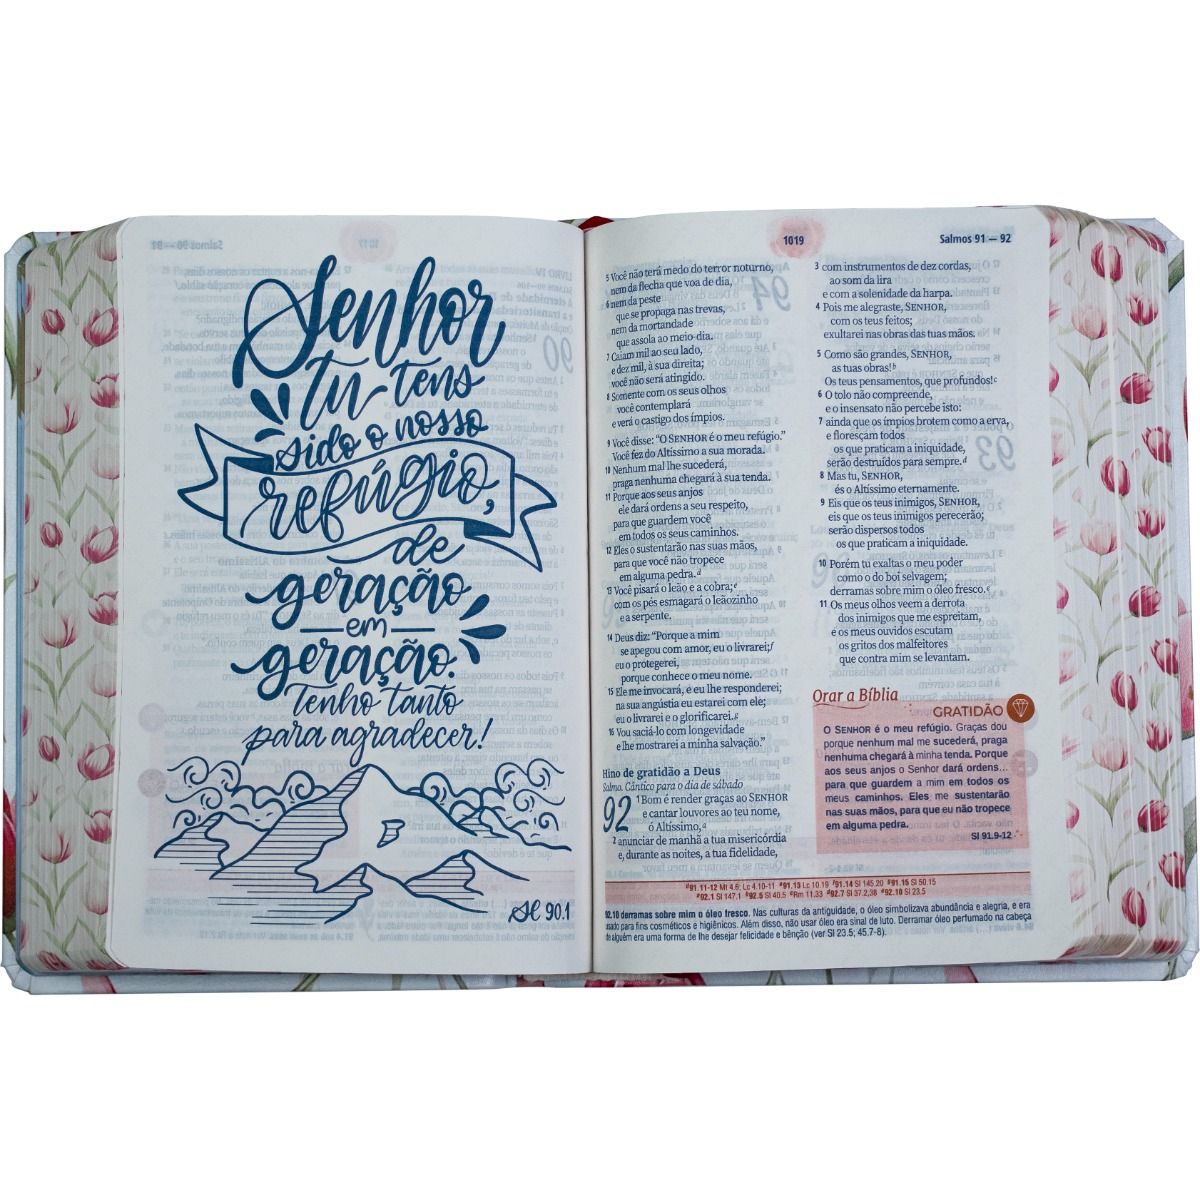 Senhor
tu tens
sido o nosso
refúgio,
de
geração
em
geração.
Tenho tanto
para agradecer!
Sl 90.1
1019
Salmos 91 — 92
5 Você não terá medo do terror noturno,
nem da flecha que voa de dia,
6 nem da peste
que se propaga nas trevas,
nem da mortandade
que assola ao meio-dia.
7 Caiam mil ao seu lado,
e dez mil, à sua direita;
você não será atingido.
8 Somente com os seus olhos
você contemplará
e verá o castigo dos ímpios.
9 Você disse: "O SENHOR é o meu refúgio."
Você fez do Altíssimo a sua morada.
10 Nenhum mal lhe sucederá,
praga nenhuma chegará à sua tenda.
11 Porque aos seus anjos
ele dará ordens a seu respeito,
para que guardem você
em todos os seus caminhos.
12 Eles o sustentarão nas suas mãos,
para que você não tropece
em alguma pedra.d
13 Você pisará o leão e a cobra;e
com os pés esmagará o leãozinho
e a serpente.
14 Deus diz: "Porque a mim
se apegou com amor, eu o livrarei;f
eu o protegerei,
porque conhece o meu nome.
15 Ele me invocará, e eu lhe responderei;
na sua angústia eu estarei com ele;
eu o livrarei e o glorificarei.g
16 Vou saciá-lo com longevidade
e lhe mostrarei a minha salvação."
Hino de gratidão a Deus
Salmo. Cântico para o dia de sábado
92 1 Bom é render graças ao SENHOR
e cantar louvores ao teu nome,
ó Altíssimo,a
2 anunciar de manhã a tua misericórdia
e, durante as noites, a tua fidelidade,
3 com instrumentos de dez cordas,
ao som da lira
e com a solenidade da harpa.
4 Pois me alegraste, SENHOR,
com os teus feitos;
exultarei nas obras das tuas mãos.
5 Como são grandes, SENHOR,
as tuas obras!b
Os teus pensamentos, que profundos!c
6 O tolo não compreende,
e o insensato não percebe isto:
7 ainda que os ímpios brotem como a erva,
e floresçam todos
os que praticam a iniquidade,
serão destruídos para sempre.d
8 Mas tu, SENHOR,
és o Altíssimo eternamente.
9 Eis que os teus inimigos, SENHOR,
eis que os teus inimigos perecerão;
serão dispersos todos
os que praticam a iniquidade.
10 Porém tu exaltas o meu poder
como o do boi selvagem;
derramas sobre mim o óleo fresco.e
11 Os meus olhos veem a derrota
dos inimigos que me espreitam,
e os meus ouvidos escutam
os gritos dos malfeitores
que contra mim se levantam.
Orar a Bíblia
GRATIDÃO
O SENHOR é o meu refúgio. Graças dou
porque nenhum mal me sucederá, praga
nenhuma chegará à minha tenda. Porque
aos seus anjos o Senhor dará ordens...
para que guardem a mim em todos os
meus caminhos. Eles me sustentarão
nas suas mãos, para que eu não tropece
em alguma pedra.
Sl 91.9-12
d91.11-12 Mt 4.6; Lc 4.10-11 e91.13 Lc 10.19 f91.14 Sl 145.20 g91.15 Sl 50.15
a92.1 Sl 147.1 b92.5 Sl 40.5 cRm 11.33 d92.7 Sl 37.2,38 e92.10 Sl 23.5
92.10 derramas sobre mim o óleo fresco. Nas culturas da antiguidade, o óleo simbolizava abundância e alegria, e era
usado para fins cosméticos e higiênicos. Além disso, não usar óleo era sinal de luto. Derramar óleo perfumado na cabeça
de alguém era uma forma de lhe desejar felicidade e bênção (ver Sl 23.5; 45.7-8).